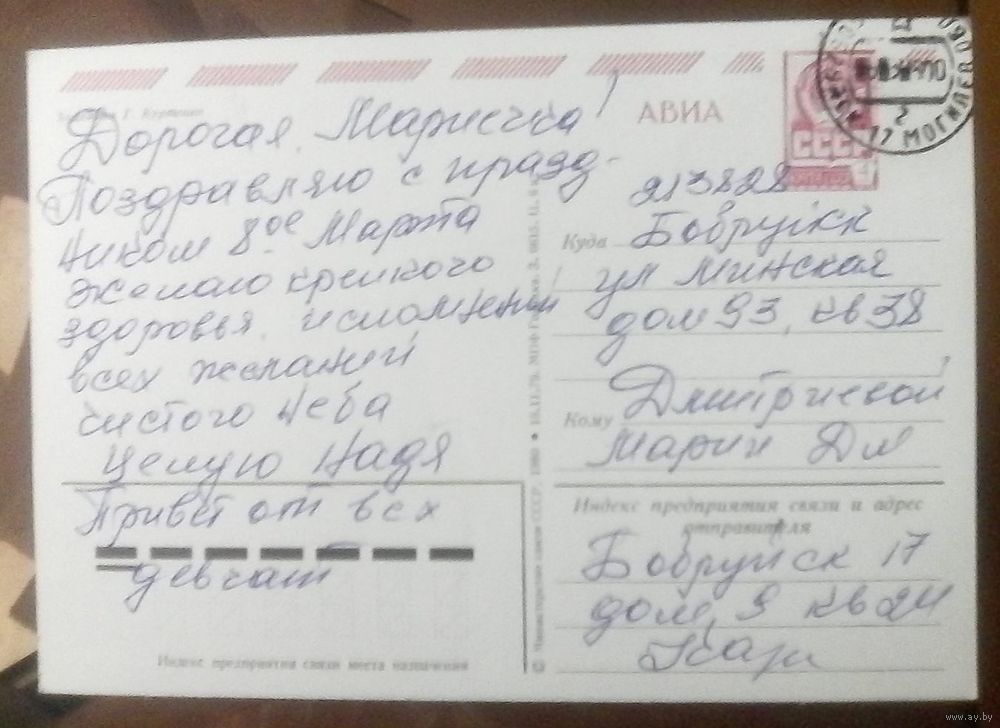 АВИА
СССР
МОГИЛЕВ
Дорогая Марисечка!
Поздравляю с празд-
ником 8ое Марта
желаю крепкого
здоровья. исполнений
всех желаний
чистого неба
целую Надя
Привет от всех
девчат
Индекс предприятия связи места назначения
213828
Куда Бобруйск
ул Минская
дом 93, кв 38
Кому
Марии Дм
Индекс предприятия связи и адрес
отправителя
Бобруйск 17
дом 9 кв 24
www.ay.by